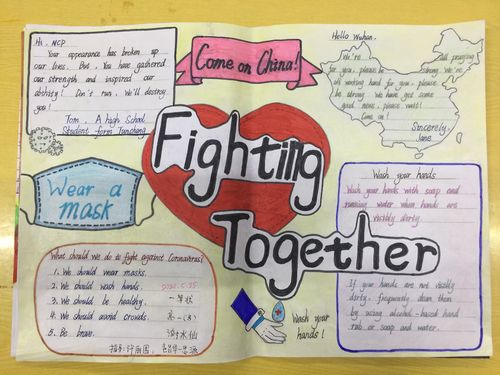 Hi, NCP
Your appearance has broken up
our lives. But, You have gathered
our strength and inspired our
ability! Don't run, We'll destroy
you!
Tom, A high School
Student form Tunchang
Come on China!
Hello Wuhan,
We're All praying
for you, please be strong. We're
all working hard for you, please
be strong. We have got some
good news, please wait!
Come on!
Sincerely,
Jane
Fighting
Together
Wear a
mask
Wash your hands
Wash your hands with soap and
running water when hands are
visibly dirty.
If your hands are not visibly
dirty, frequently clean them
by using alcohol-based hand
rub or soap and water.
What should we do to fight against Coronavirus?
1. We should wear masks.
2. We should wash hands.
3. We should be healthy.
一等奖
4. We should avoid crowds.
5. Be brave.
水仙
Wash your
hands!